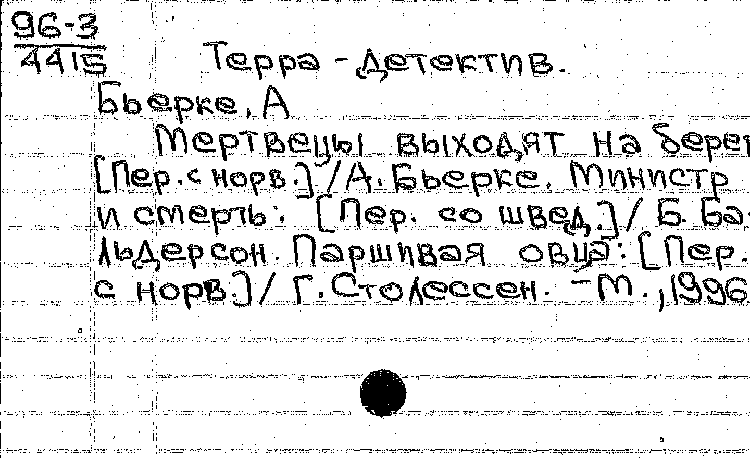 96-3
4415
Терра - детектив.
Бьерке, А
Мертвецы выходят на берег
[Пер. с норв.] / А. Бьерке. Министр
и смерть: [Пер. со швед.] / Б. Ба-
льдерсон. Паршивая овца: [Пер.
с норв.] / Г. Столессен. - М., 1996